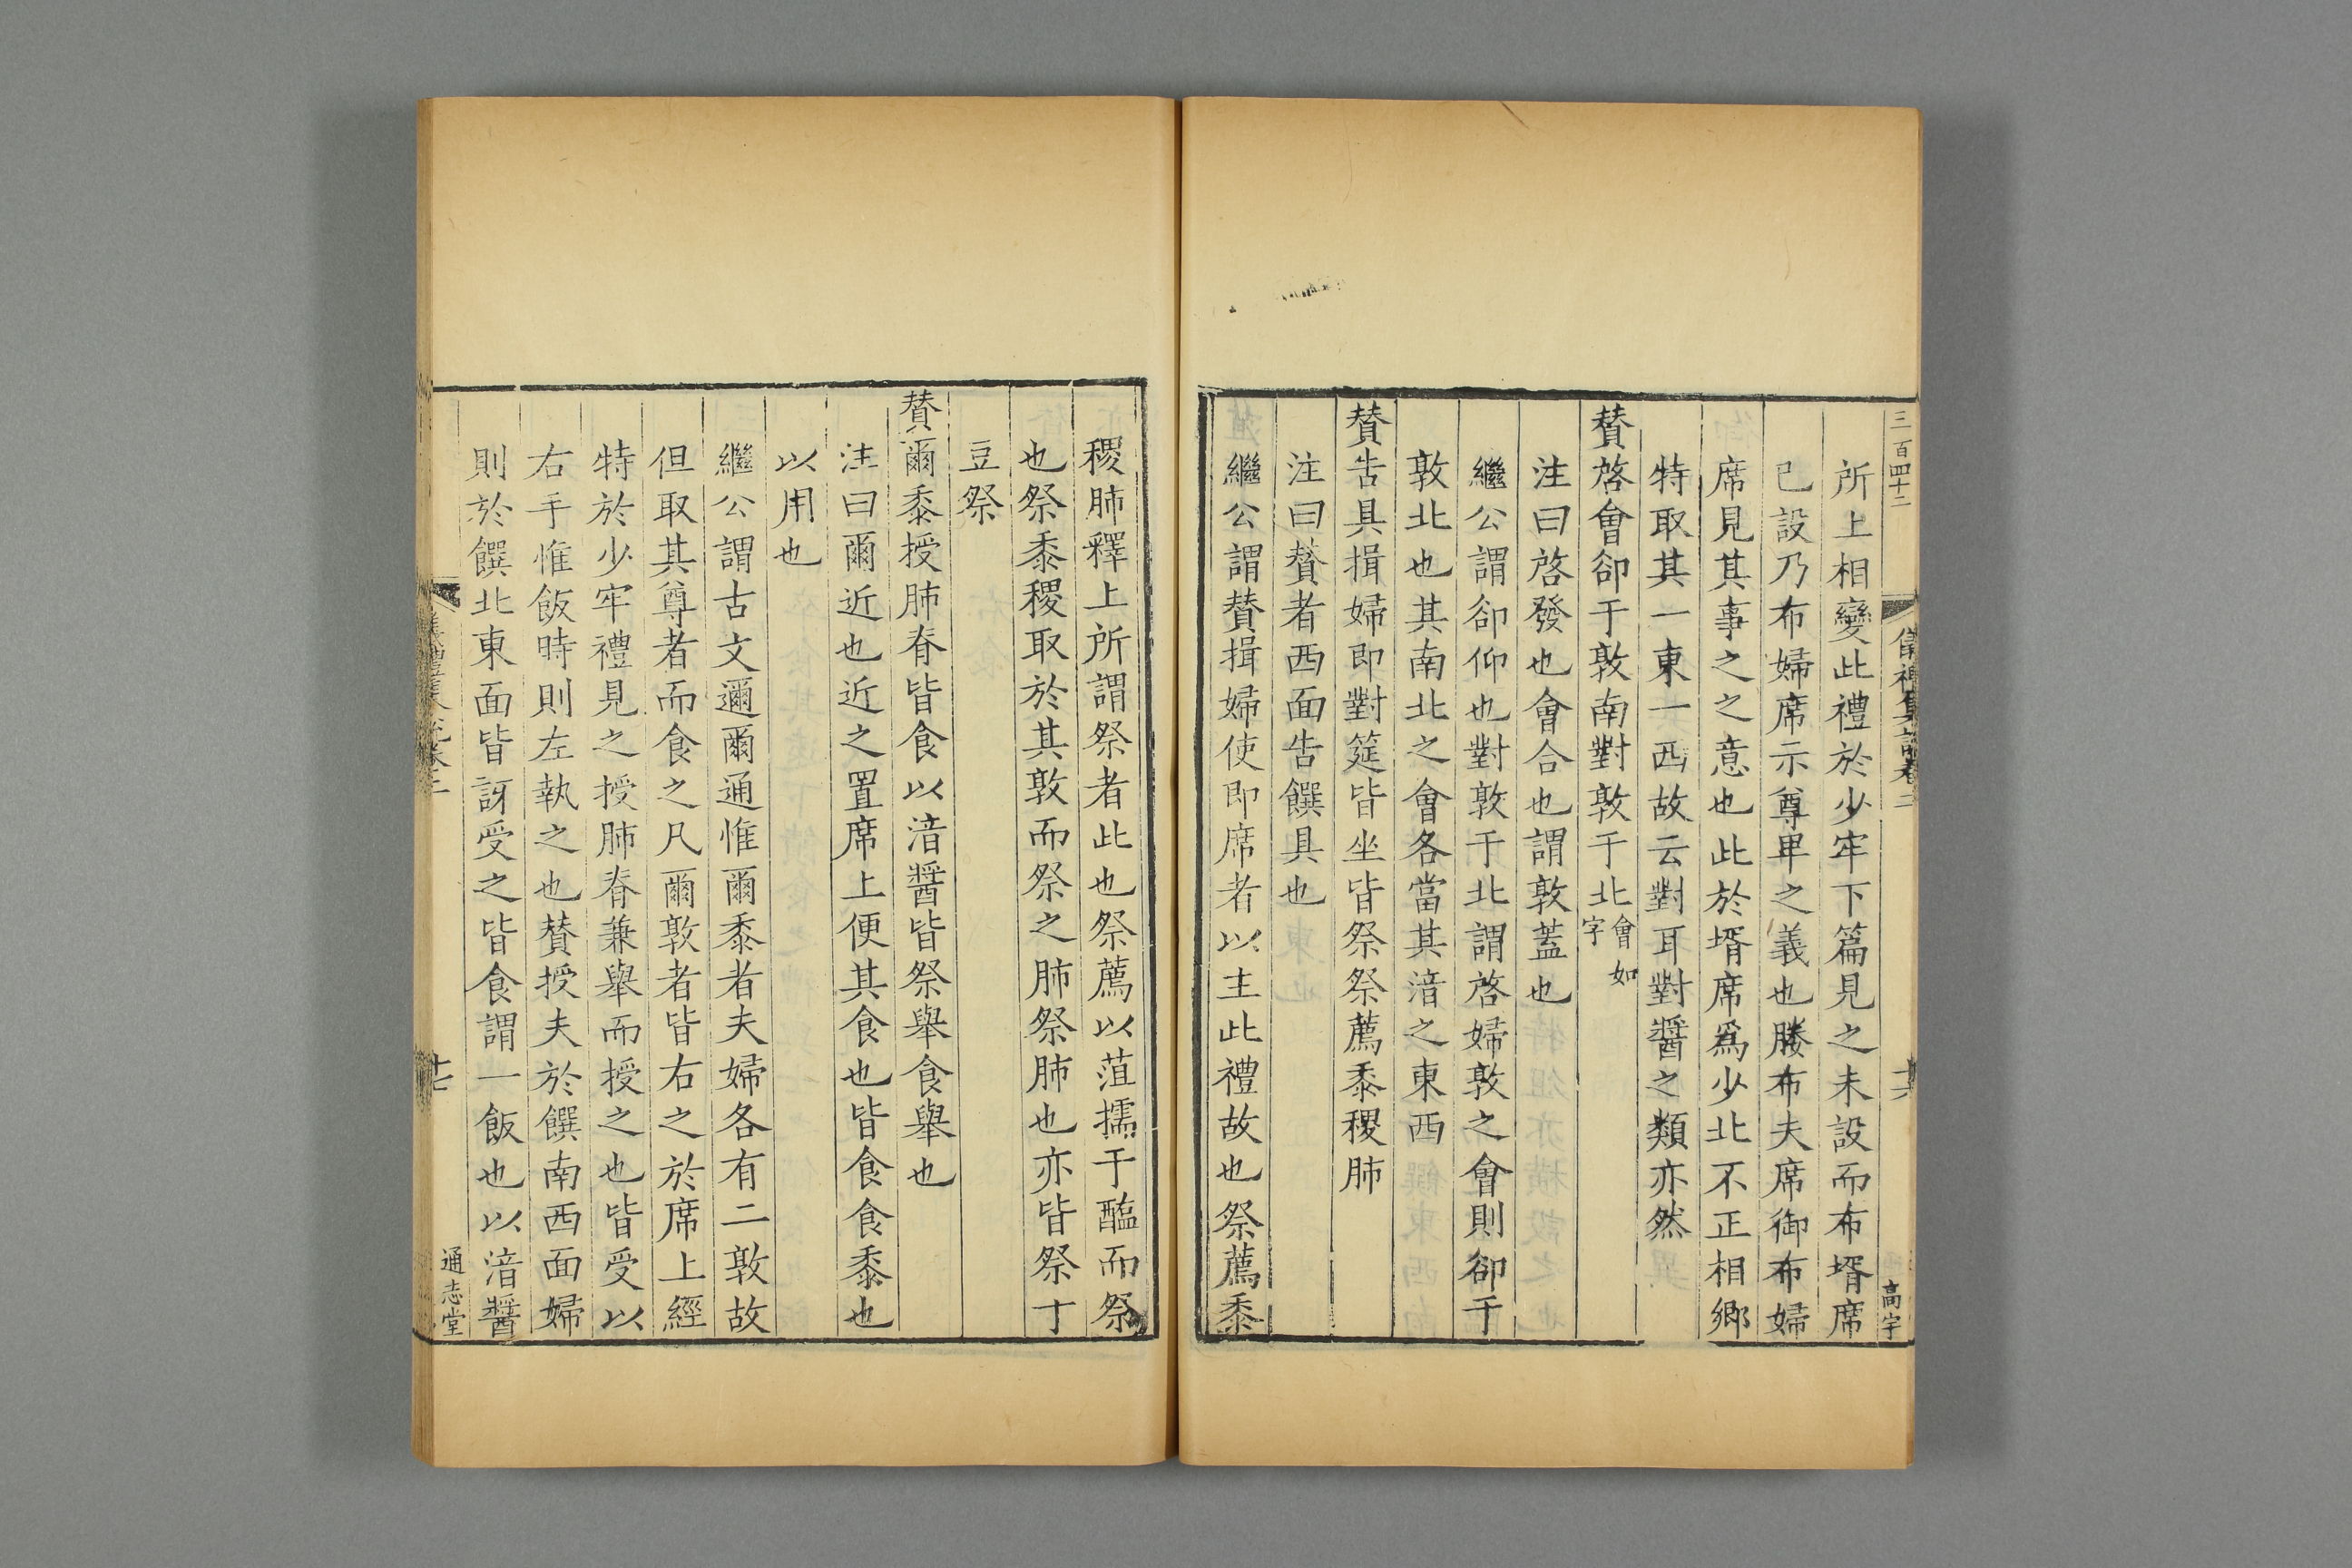 三百四十二
儀禮集說卷二
十六
高宇
所上相變此禮於少牢下篇見之未設而布壻席
已設乃布婦席示尊卑之義也媵布夫席御布婦
席見其事之之意也此於壻席爲少北不正相鄉
特取其一東一西故云對耳對醬之類亦然
贊啓會卻于敦南對敦于北會如字
注曰啓發也會合也謂敦蓋也
繼公謂卻仰也對敦于北謂啓婦敦之會則卻于
敦北也其南北之會各當其湆之東西
贊告具揖婦即對筵皆坐皆祭祭薦黍稷肺
注曰贊者西面告饌具也
繼公謂贊揖婦使即席者以主此禮故也祭薦黍
稷肺釋上所謂祭者此也祭薦以菹擩于醢而祭
也祭黍稷取於其敦而祭之肺祭肺也亦皆祭于
豆祭
贊爾黍授肺脊皆食以湆醬皆祭舉食舉也
注曰爾近也近之置席上便其食也皆食食黍也
以用也
繼公謂古文邇爾通惟爾黍者夫婦各有二敦故
但取其尊者而食之凡爾敦者皆右之於席上經
特於少牢禮見之授肺脊兼舉而授之也皆受以
右手惟飯時則左執之也贊授夫於饌南西面婦
則於饌北東面皆訝受之皆食謂一飯也以湆醬
十七
通志堂